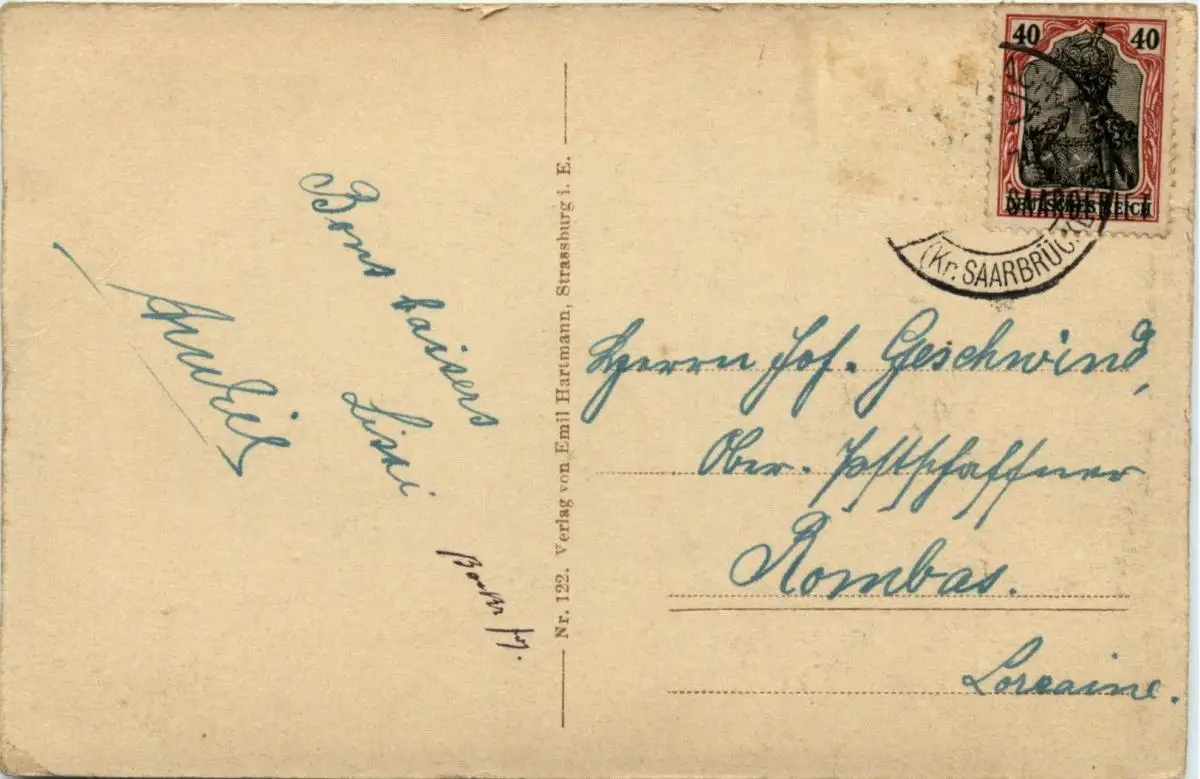 Bons baisers
Lissi
Nr. 122. Verlag von Emil Hartmann, Strassburg i. E.
40 40
DEUTSCHES REICH
SAARGEBIET
(Kr. SAARBRÜCKEN
Herrn Jos. Geschwind,
Ober-Postschaffner
Rombas.
Lorraine.